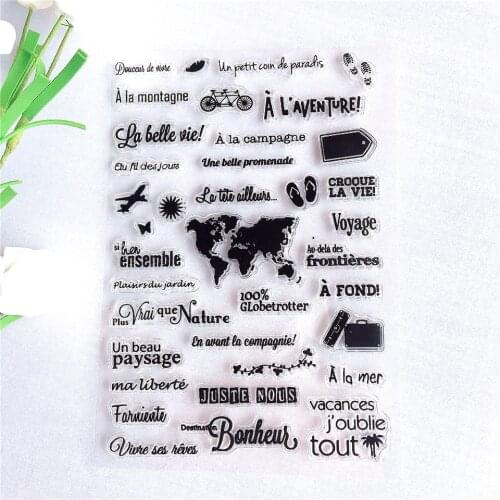 Douceur de vivre
Un petit coin de paradis
À la montagne
À L'AVENTURE!
La belle vie!
À la campagne
Au fil des jours
Une belle promenade
La tête ailleurs...
CROQUE
LA VIE!
Voyage
si bien
ensemble
Au-delà des
frontières
Plaisirs du jardin
100%
GLobetrotter
À FOND!
Plus Vrai que Nature
En avant la compagnie!
Un beau
paysage
À la mer
ma liberté
JUSTE NOUS
Farniente
Destination
Bonheur
vacances
j'oublie
tout
Vivre ses rêves